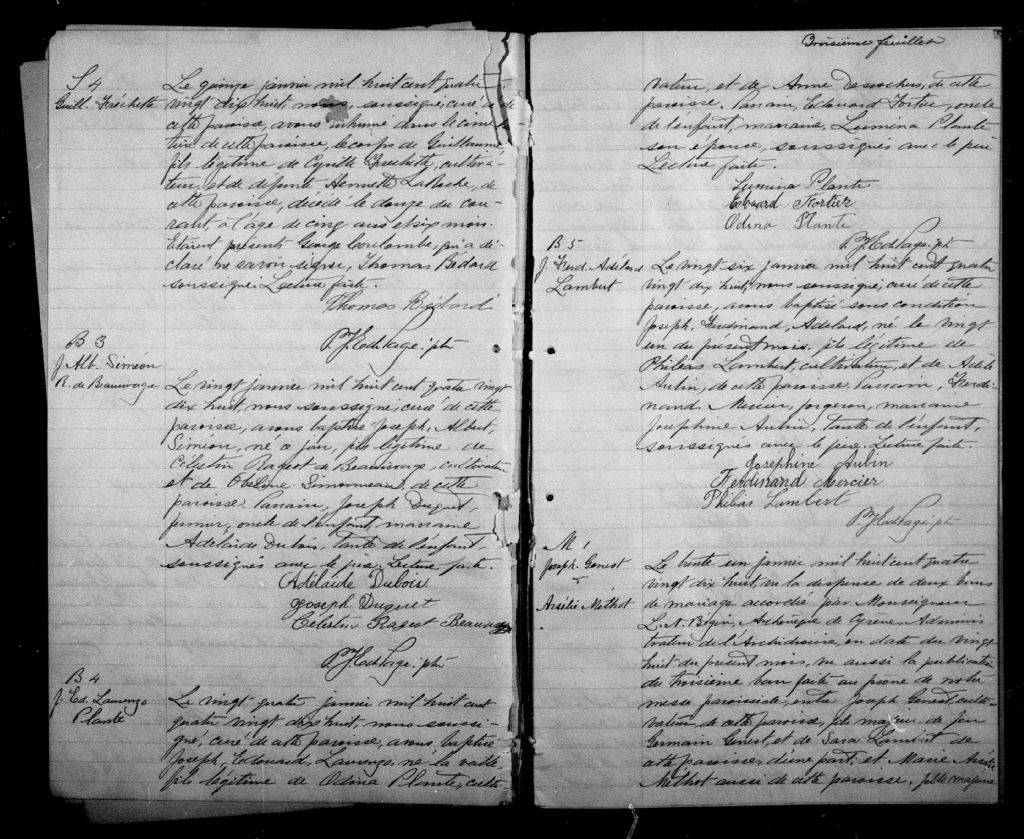 S 4
Guill. Fréchette
Le quinze janvier mil huit cent quatre
vingt dix huit, nous, soussigné, curé de
cette paroisse, avons inhumé dans le cime
tière de cette paroisse, le corps de Guillaume,
fils légitime de Cyrille Frechette, cultiva-
teur, et de défunte Henriette LaRoche, de
cette paroisse, décédé le douze du cou-
rant, à l'âge de cinq ans et six mois.
Etaient présents George Coulombe, qui a dé-
claré ne savoir signer, Thomas Bédard
soussigné. Lecture faite.
Thomas Bédard
ptre
B 3
J. Alb. Siméon
R. de Beaurivage
Le vingt janvier mil huit cent quatre vingt
dix huit, nous soussigné, curé de cette
paroisse, avons baptisé Joseph, Albert,
Siméon, né ce jour, fils légitime de
Célestin Rageot de Beaurivage, cultivateur
et de Obéline Simonneau, de cette
paroisse. Parrain, Joseph Duguet,
fermier, oncle de l'enfant, marraine
Adélaide Dubois, tante de l'enfant,
soussignés avec le père. Lecture faite.
Adélaide Dubois
Joseph Duguet
Célestin Rageot Beaurivage
ptre
B 4
J. Ed. Laurenzo
Plante
Le vingt quatre janvier mil huit cent
quatre vingt dix huit, nous soussi-
gné, curé de cette paroisse, avons baptisé
Joseph, Edouard, Laurenzo, né la veille,
fils légitime de Odina Plante, culti-
Troisième feuillet
vateur, et de Anne Desrochers, de cette
paroisse. Parrain, Edouard Fortier, oncle
de l'enfant, marraine, Lumina Plante
son épouse, soussignés avec le père
Lecture faite.
Lumina Plante
Edouard Fortier
Odina Plante
ptre
B 5
J. Ferd. Adélard
Lambert
Le vingt six janvier mil huit cent quatre
vingt dix huit, nous soussigné, curé de cette
paroisse, avons baptisé sous condition
Joseph, Ferdinand, Adelard, né le vingt
un du présent mois, fils légitime de
Philéas Lambert, cultivateur, et de Adèle
Aubin, de cette paroisse. Parrain, Ferdi-
nand Mercier, forgeron, marraine
Josephine Aubin, tante de l'enfant,
soussignés avec le père. Lecture faite.
Josephine Aubin
Ferdinand Mercier
Philéas Lambert
ptre
M 1
Joseph Genest
Le trente un janvier mil huit cent quatre
vingt dix huit, vu la dispense de deux bans
de mariage accordée par Monseigneur
L. N. Bégin, Archevêque de Cyrène, Adminis
trateur de l'Archidiocèse, en date du vingt
huit du présent mois, vu aussi la publication
du troisième ban faite au prône de notre
messe paroissiale, entre Joseph Genest, culti-
vateur, de cette paroisse, fils majeur de feu
Germain Genest, et de Sara Lambert de
cette paroisse, d'une part; et Marie
Methot aussi de cette paroisse, fille majeure